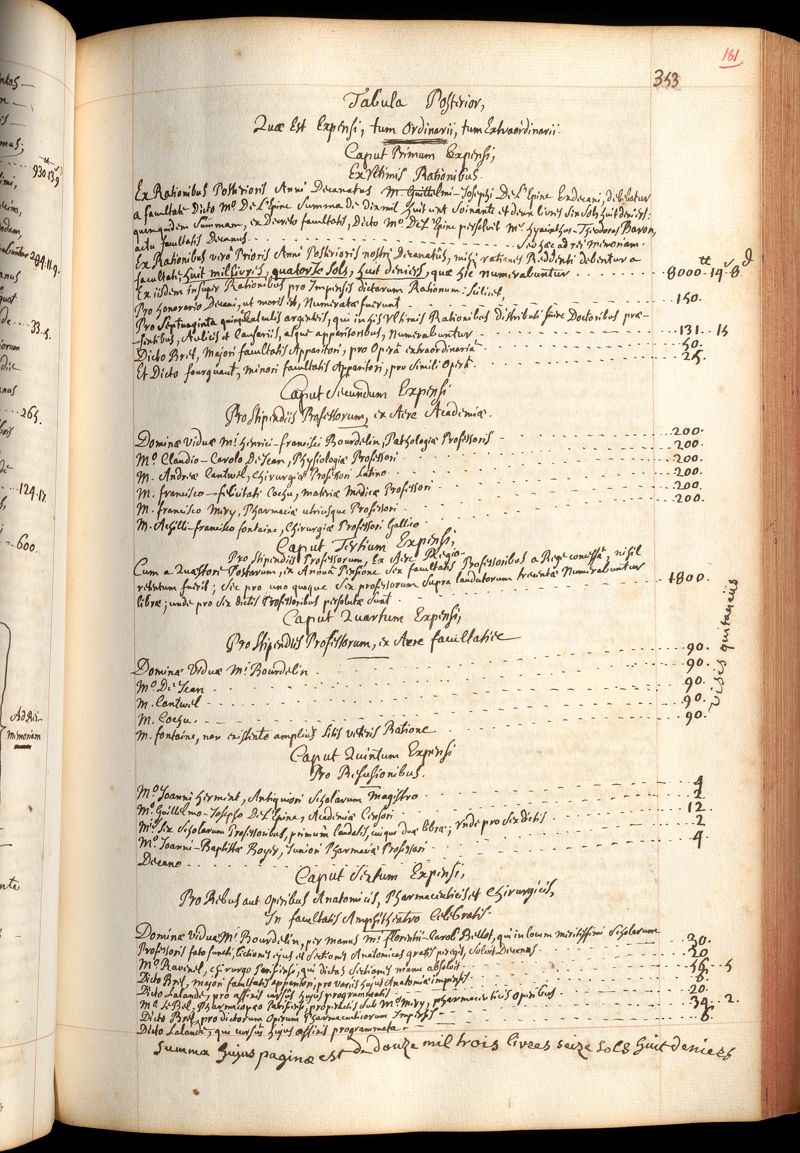 181
353
Tabula Posterior,
Quæ Est Expensi, tum Ordinarii, tum Extraordinarii.
Caput Primum Expensi,
Ex Ultimis Rationibus.
Ex Rationibus Posterioris Anni Decanatus M. Guillelmi-Josephi De L'Epine Exdecani, debebatur
a facultate Dicto Mº De L'Epine Summa de dix mil huit cent Soixante et deux livres six sols huit deniers:
quamquidem Summam, ex Decreto facultatis, Dicto Mº De L'Epine persolvit Mº Hyacinthus-Theodorus Baron,
actu facultatis Decanus. Sed hæc ad rei memoriam.
Ex Rationibus verò Prioris Anni Posterioris nostri Decanatus, mihi rationes Reddenti debentur a
facultate, huit mil livres, quatorze sols, huit deniers, quæ hic numerabuntur 8000-14-8
Ex iisdem insuper Rationibus pro Impensis dictarum Rationum: Scilicet,
Pro honorario Decani, ut moris est, Numeratæ fuerunt 150.
Pro Septuaginta quinque calculis argenteis, qui in his Ultimis Rationibus distributi fuere Doctoribus præ-
sentibus, Aedilis et Censoriis, atque apparitoribus, Numerabuntur 131. 15
Dicto Bret, Majori facultatis Apparitori, pro Operâ extraordinariâ 50.
Et Dicto fourquant, minori facultatis Apparitori, pro simili Operâ. 25.
Caput Secundum Expensi
Pro Stipendiis Professorum, ex Aere Academiæ.
Dominæ viduæ Mi. Henrici-Francisci Bourdelin, Pathologiæ Professoris 200.
Mº Claudio-Carolo De Jean, Physiologiæ Professori 200.
M. Andreæ Cantwel, Chirurgiæ Professori Latino 200.
M. francisco-felicitati Cochu, materiæ Medicæ Professori 200.
M. francisco Miry, Pharmaciæ utriusque Professori 200.
M. Achilli-francisco fontaine, Chirurgiæ Professori Gallico
Caput Tertium Expensi,
Pro Stipendiis Professorum, Ex Aere Regio.
Cum a Quæstore Postarum, ex Annuâ Pensione Sex facultatis Professoribus a Rege concessâ, nihil
retentum fuerit; Sic pro uno quoque Sex professorum Supra laudatorum trecentæ Numerabuntur
libræ; unde pro Sex dictis Professoribus persolutæ sunt 1800.
Caput Quartum Expensi,
Pro Stipendiis Professorum, ex Aere facultatis
Dominæ Viduæ Mi. Bourdelin 90.
Mº De Jean 90.
M. Cantwel 90.
M. Cochu 90.
M. fontaine, non existente amplius Litis veteris Ratione 90.
visis quitanciis
Caput Quintum Expensi
Pro Refusionibus.
Mº Joanni Herment, Antiquiori Scholarum Magistro 4
Mº Guillelmo-Josepho De L'Epine, Academiæ Censori 2
Mis Sex Scholarum Professoribus, primùm laudatis, cuique duæ libræ; Unde pro Sex dictis 12
Mº Joanni-Baptistæ Boyer, Juniori Pharmaciæ Professori 2
Decano 4
Caput Sextum Expensi,
Pro Rebus aut Operibus Anatomicis, Pharmaceuticis et Chirurgicis,
In facultatis Amphitheatro Celebratis.
Dominæ viduæ Mi. Bourdelin, per manus Mi florentii-Caroli Bellot, qui in locum meritissimi Scholarum
Professoris fato functi, lectiones ejus et Sectiones Anatomicas gratis peregit, Solvit Decanus. 30.
Mº Ravinel, chirurgo Parisino, qui Dictas Sectiones manu absolvit 20.
Dicto Bret, majori facultatis apparitori, pro variis hujus Anatomiæ impensis 56-5
Dicto Lalande, pro affixis cursûs hujus programmatis 6.
Mº Le Bel, Pharmacopæo Parisiensi, pro peractis sub Mº Miry, pharmaceuticis Operibus 20.
Dicto Bret, pro dictorum Operum Pharmaceuticorum Impensis 34. 2.
Dicto Lalande, qui cursûs hujus affixit programmata. 6.
Summa hujus paginæ est de douze mil trois livres seize sols huit deniers